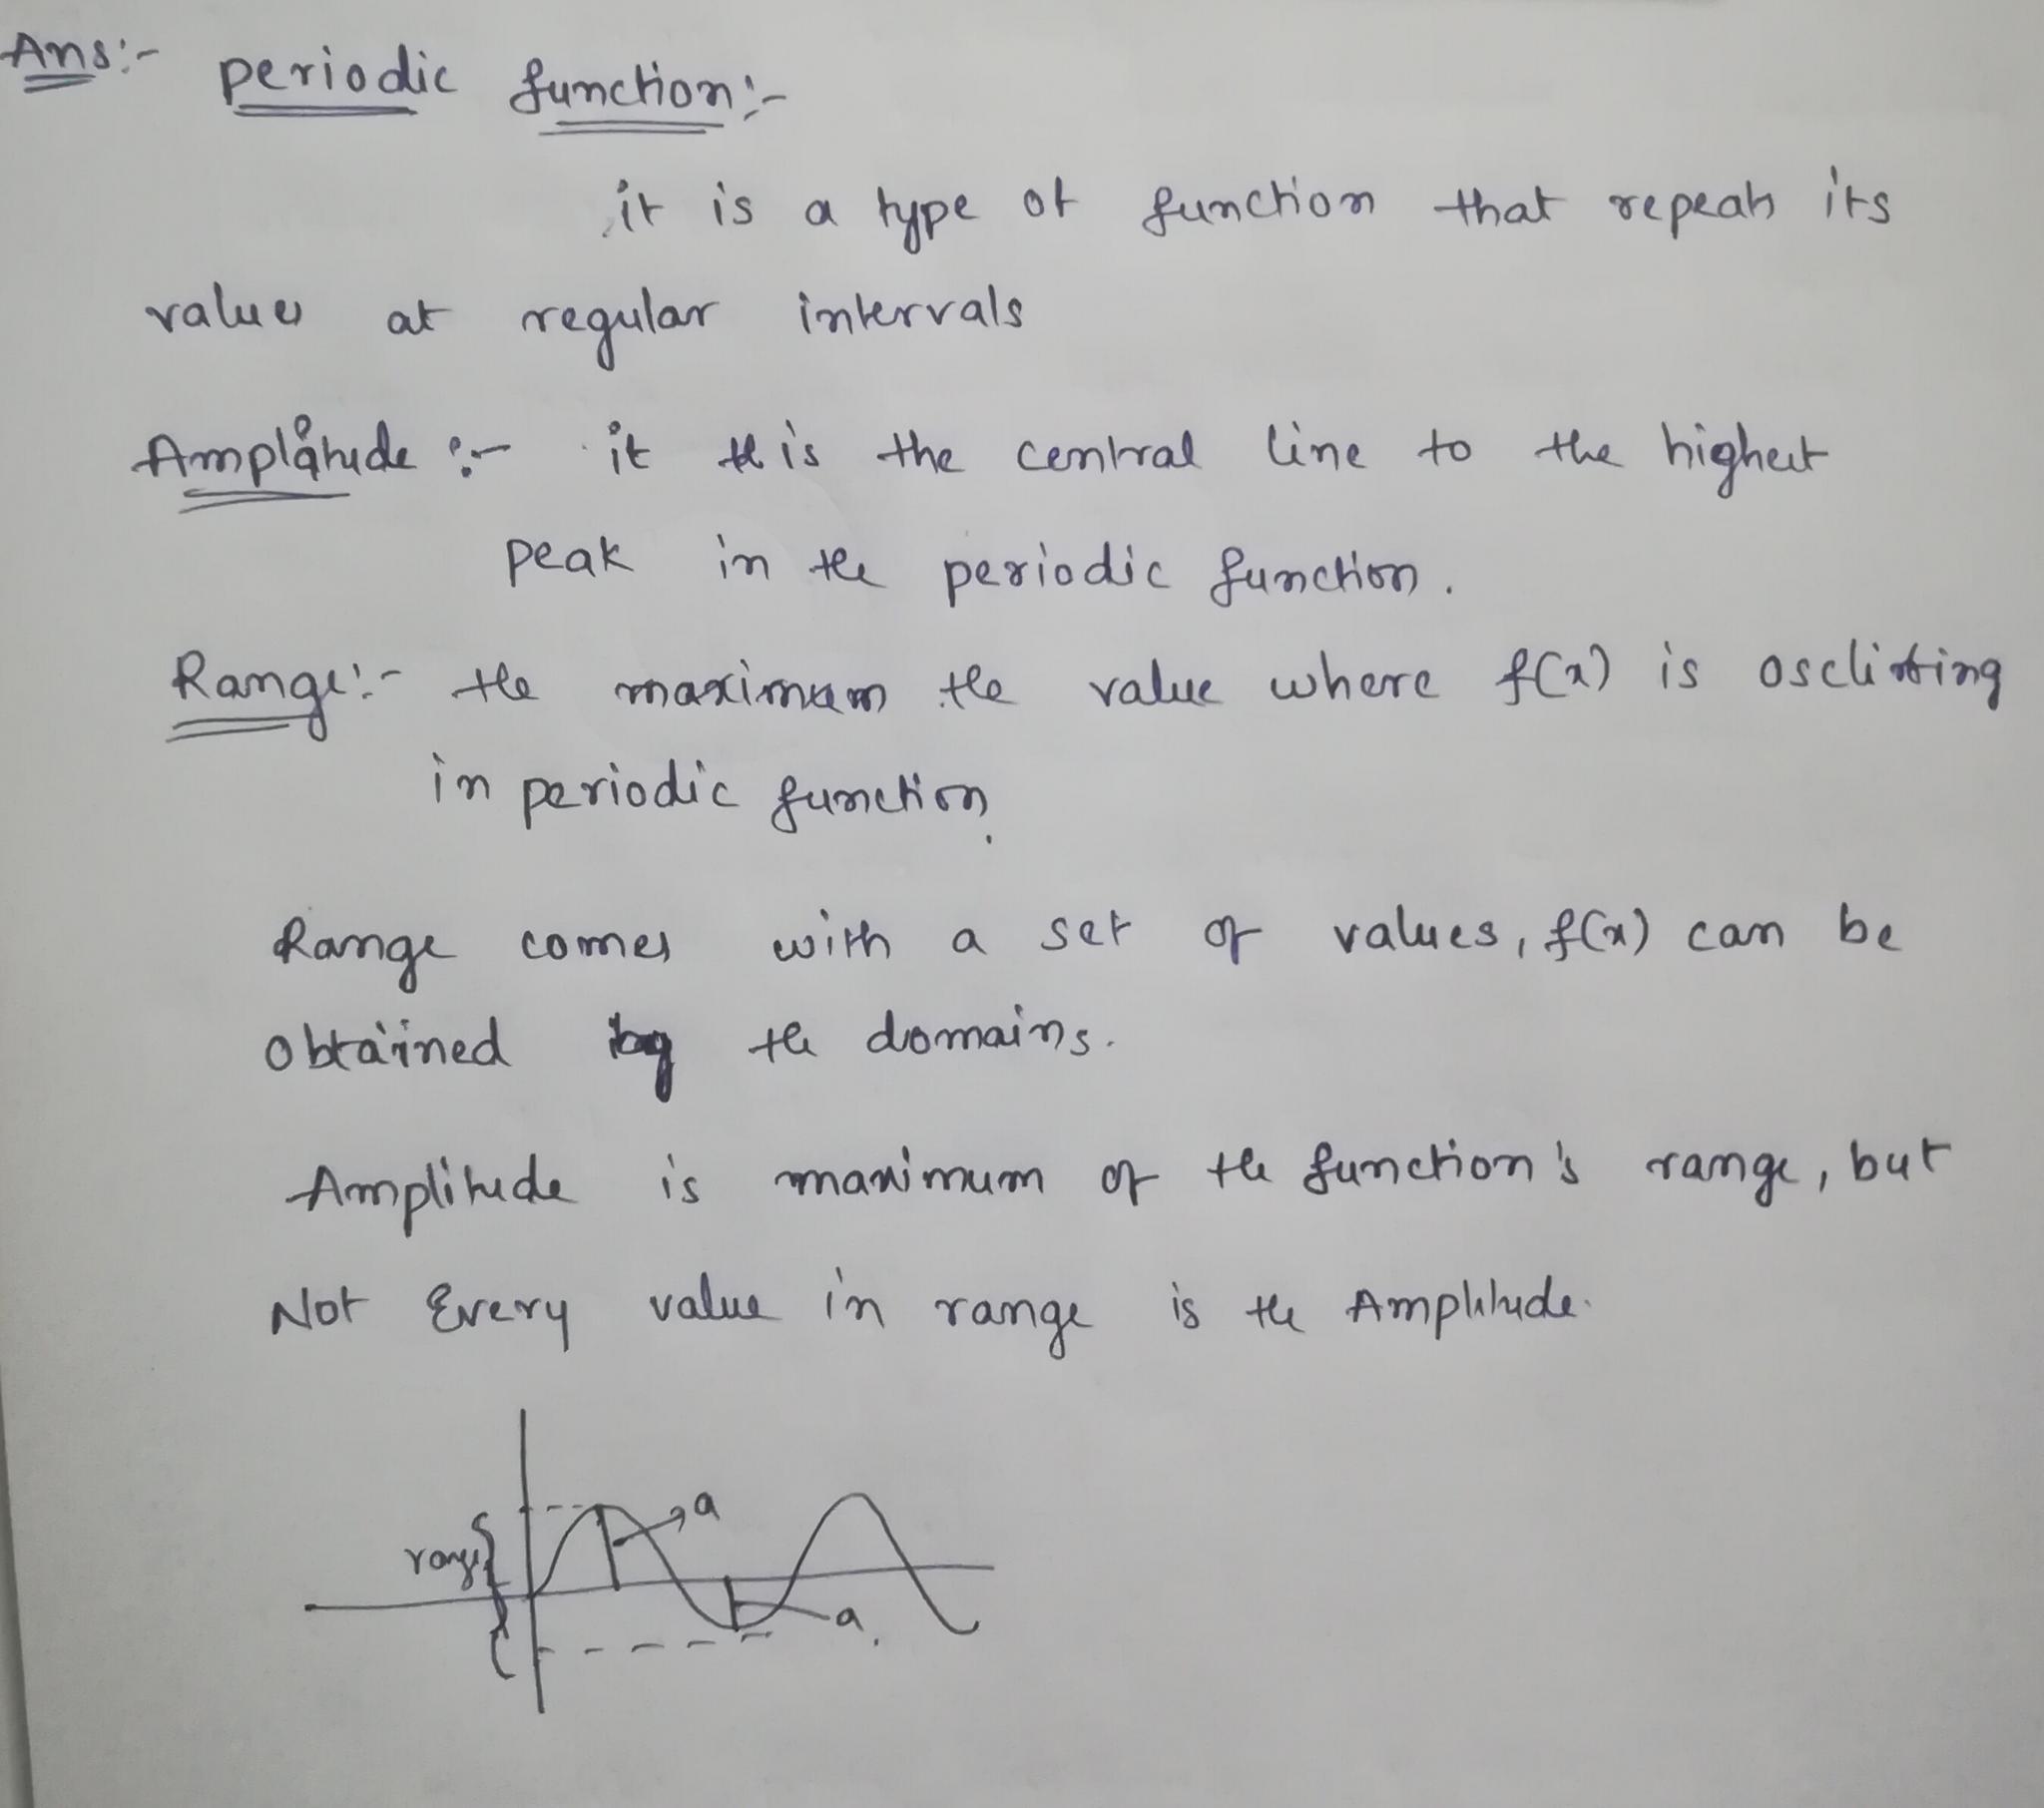 Ans:- periodic function:-
it is a type of function that repeats its
values at regular intervals
Amplitude :- it is the central line to the highest
peak in the periodic function.
Range:- the maximum the value where f(x) is osclitting
in periodic function.
Range comes with a set of values, f(x) can be
obtained by the domains.
Amplitude is maximum of the function's range, but
Not Every value in range is the Amplitude.
a
range
a.